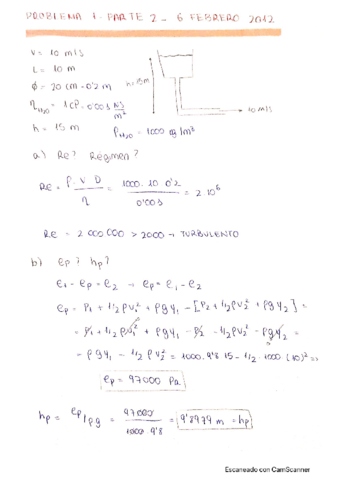 PROBLEMA 1. PARTE 2 - 6 FEBRERO 2012
V = 10 m/s
L = 10 m
Ø = 20 cm - 0'2 m
h = 15 m
10 m/s
η H₂O = 1 CP - 0'003 NS/m²
h = 15 m
ρ H₂O = 1000 kg/m³
a) Re? Régimen?
Re = ρ. V. D / η = 1000. 10. 0'2 / 0'003 = 2. 10⁶
Re = 2 000 000 > 2000 → TURBULENTO
b) ep? hp?
e₁ - ep = e₂ → ep = e₁ - e₂
ep = P₁ + 1/2 ρv₁² + ρgy₁ - [P₂ + 1/2 ρv₂² + ρgy₂] =
= P₁ + 1/2 ρv₁² + ρgy₁ - P₂ - 1/2 ρv₂² - ρgy₂ =
= ρgy₁ - 1/2 ρv₂² = 1000. 9'8. 15 - 1/2. 1000 (10)² =>
ep = 97000 Pa
hp = ep/ρg = 97000 / 1000. 9'8 = 9'8979 m = hp
Escaneado con CamScanner